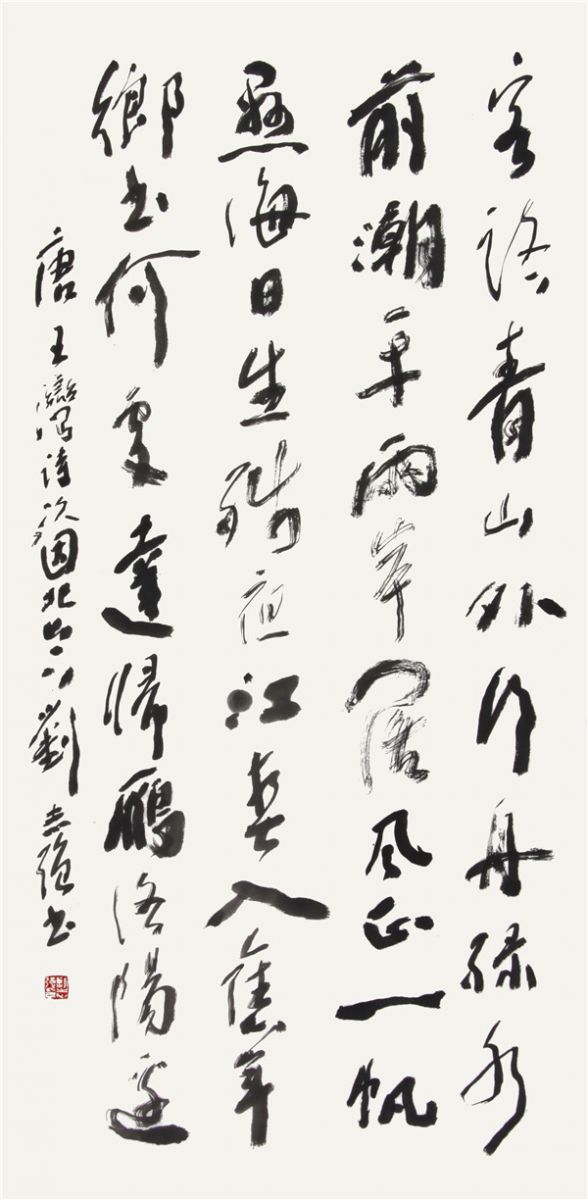 客路青山外行舟綠水
前潮平兩岸闊風正一帆
懸海日生殘夜江春入舊年
鄉書何處達歸鴈洛陽邊
唐王灣詩次固北山下劉志強書